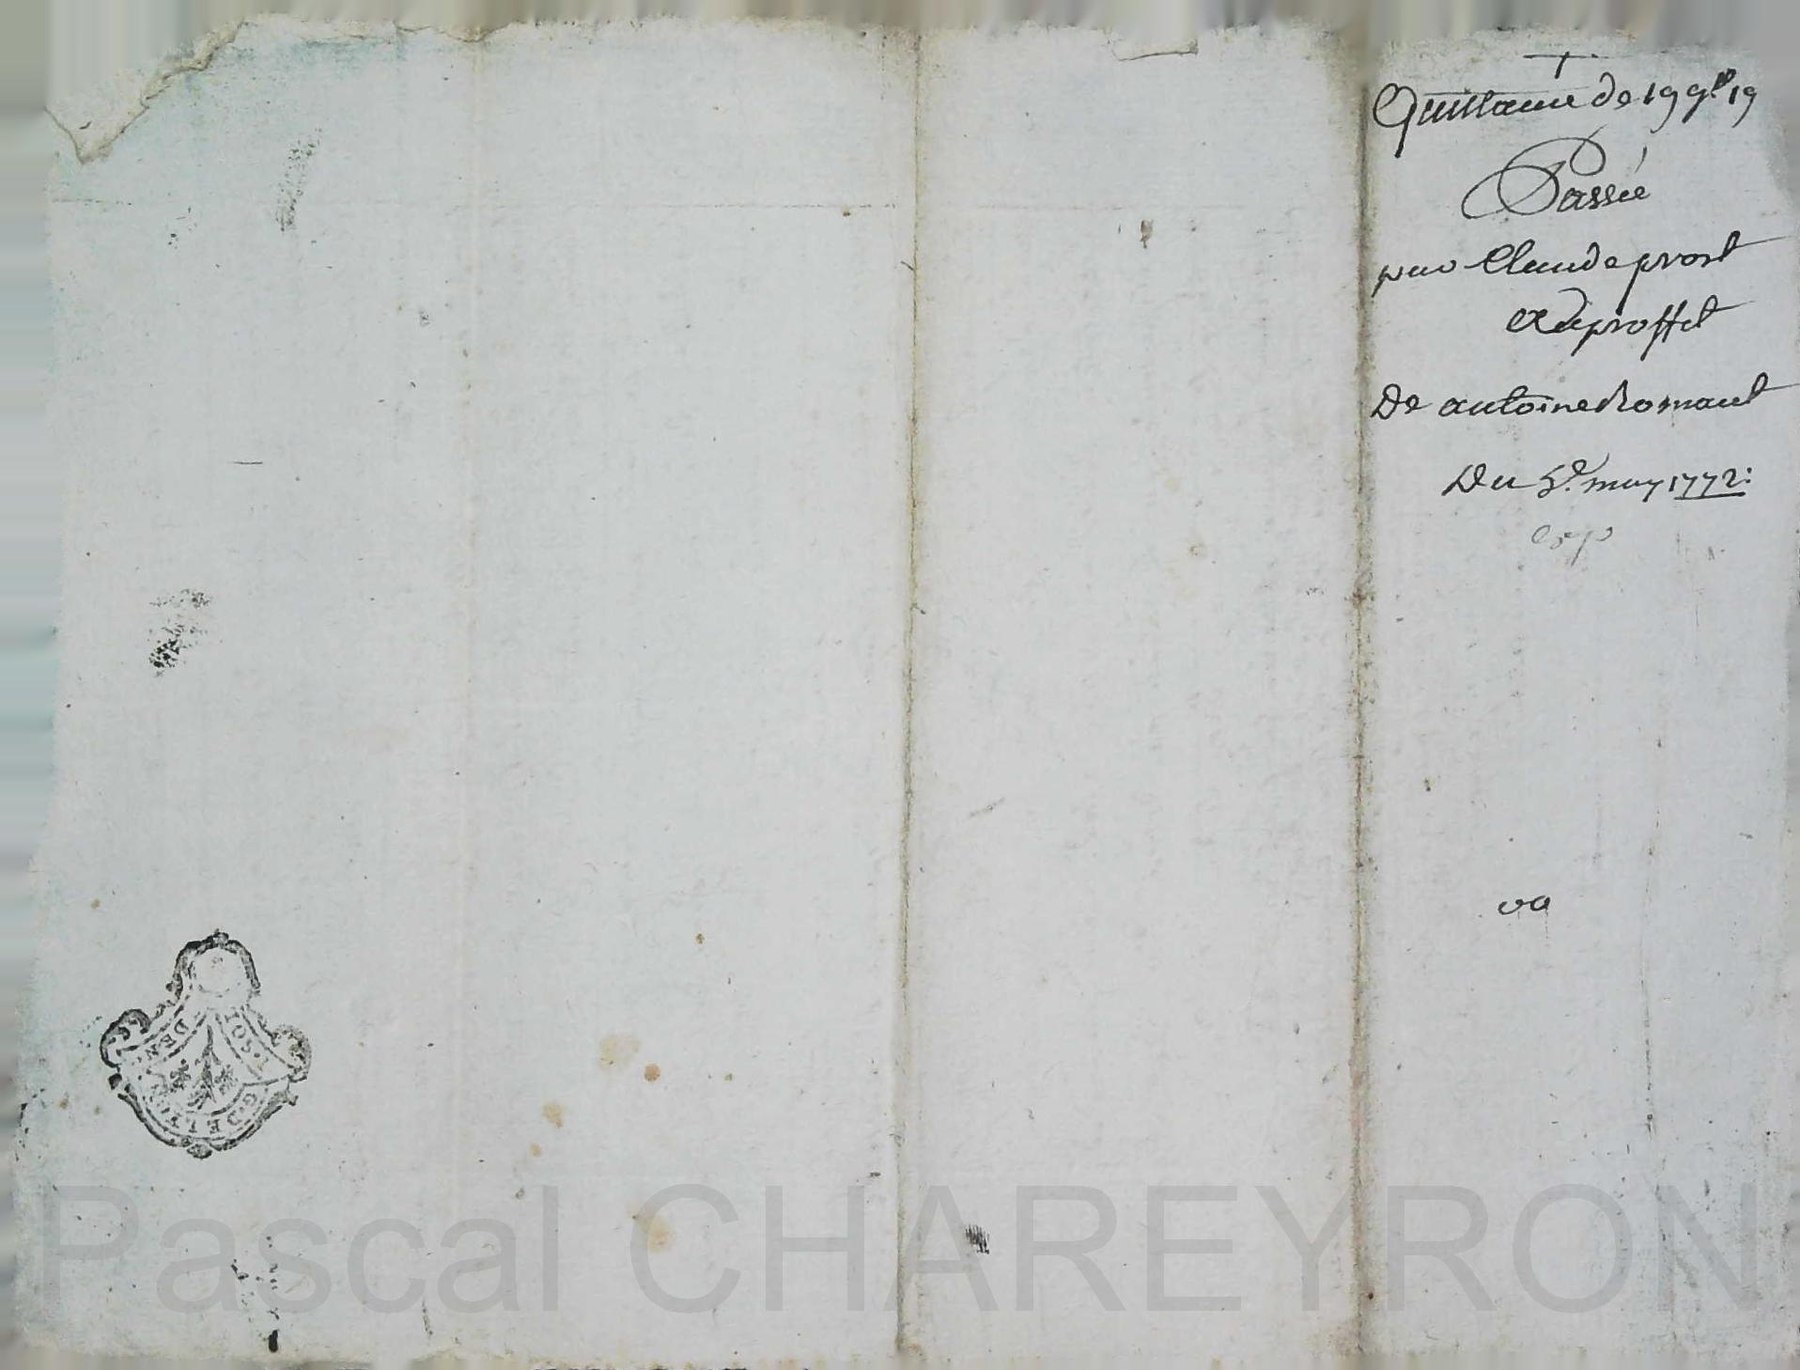 Quittance de 199# 19
Passée
par Claude prost
Au proffit
De antoine Romant
Du 5e. may 1772:
va
G. DE LYON
DEN
Pascal CHAREYRON